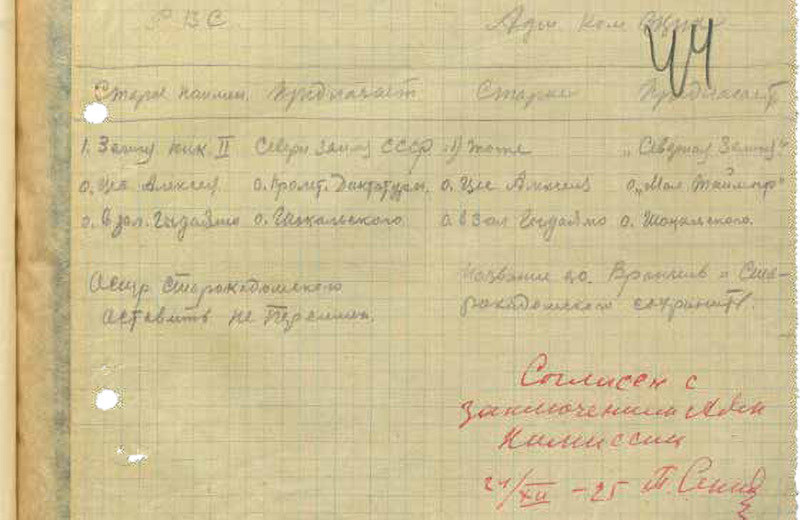 РВС Адм Ком ВЦИК
44
Старое наимен. Предлагает Старое Предлагает
1. Землю Ник II Северн Землю СССР 1) тоже „Северная Земля"
о. Цес Алексея о. Пролет. Диктатуры. о. Цес Алексея о. „Мал Таймыр"
о. в зал. Гыдаямо о. Шокальского о в зал Гыдаямо о. Шокальского.
Остр Старокадомского
оставить не переимен.
Название во. Врангеля и Ста-
рокадомского сохранить.
Согласен с
заключением Адм
Комиссии
21/XII – 25 Т.